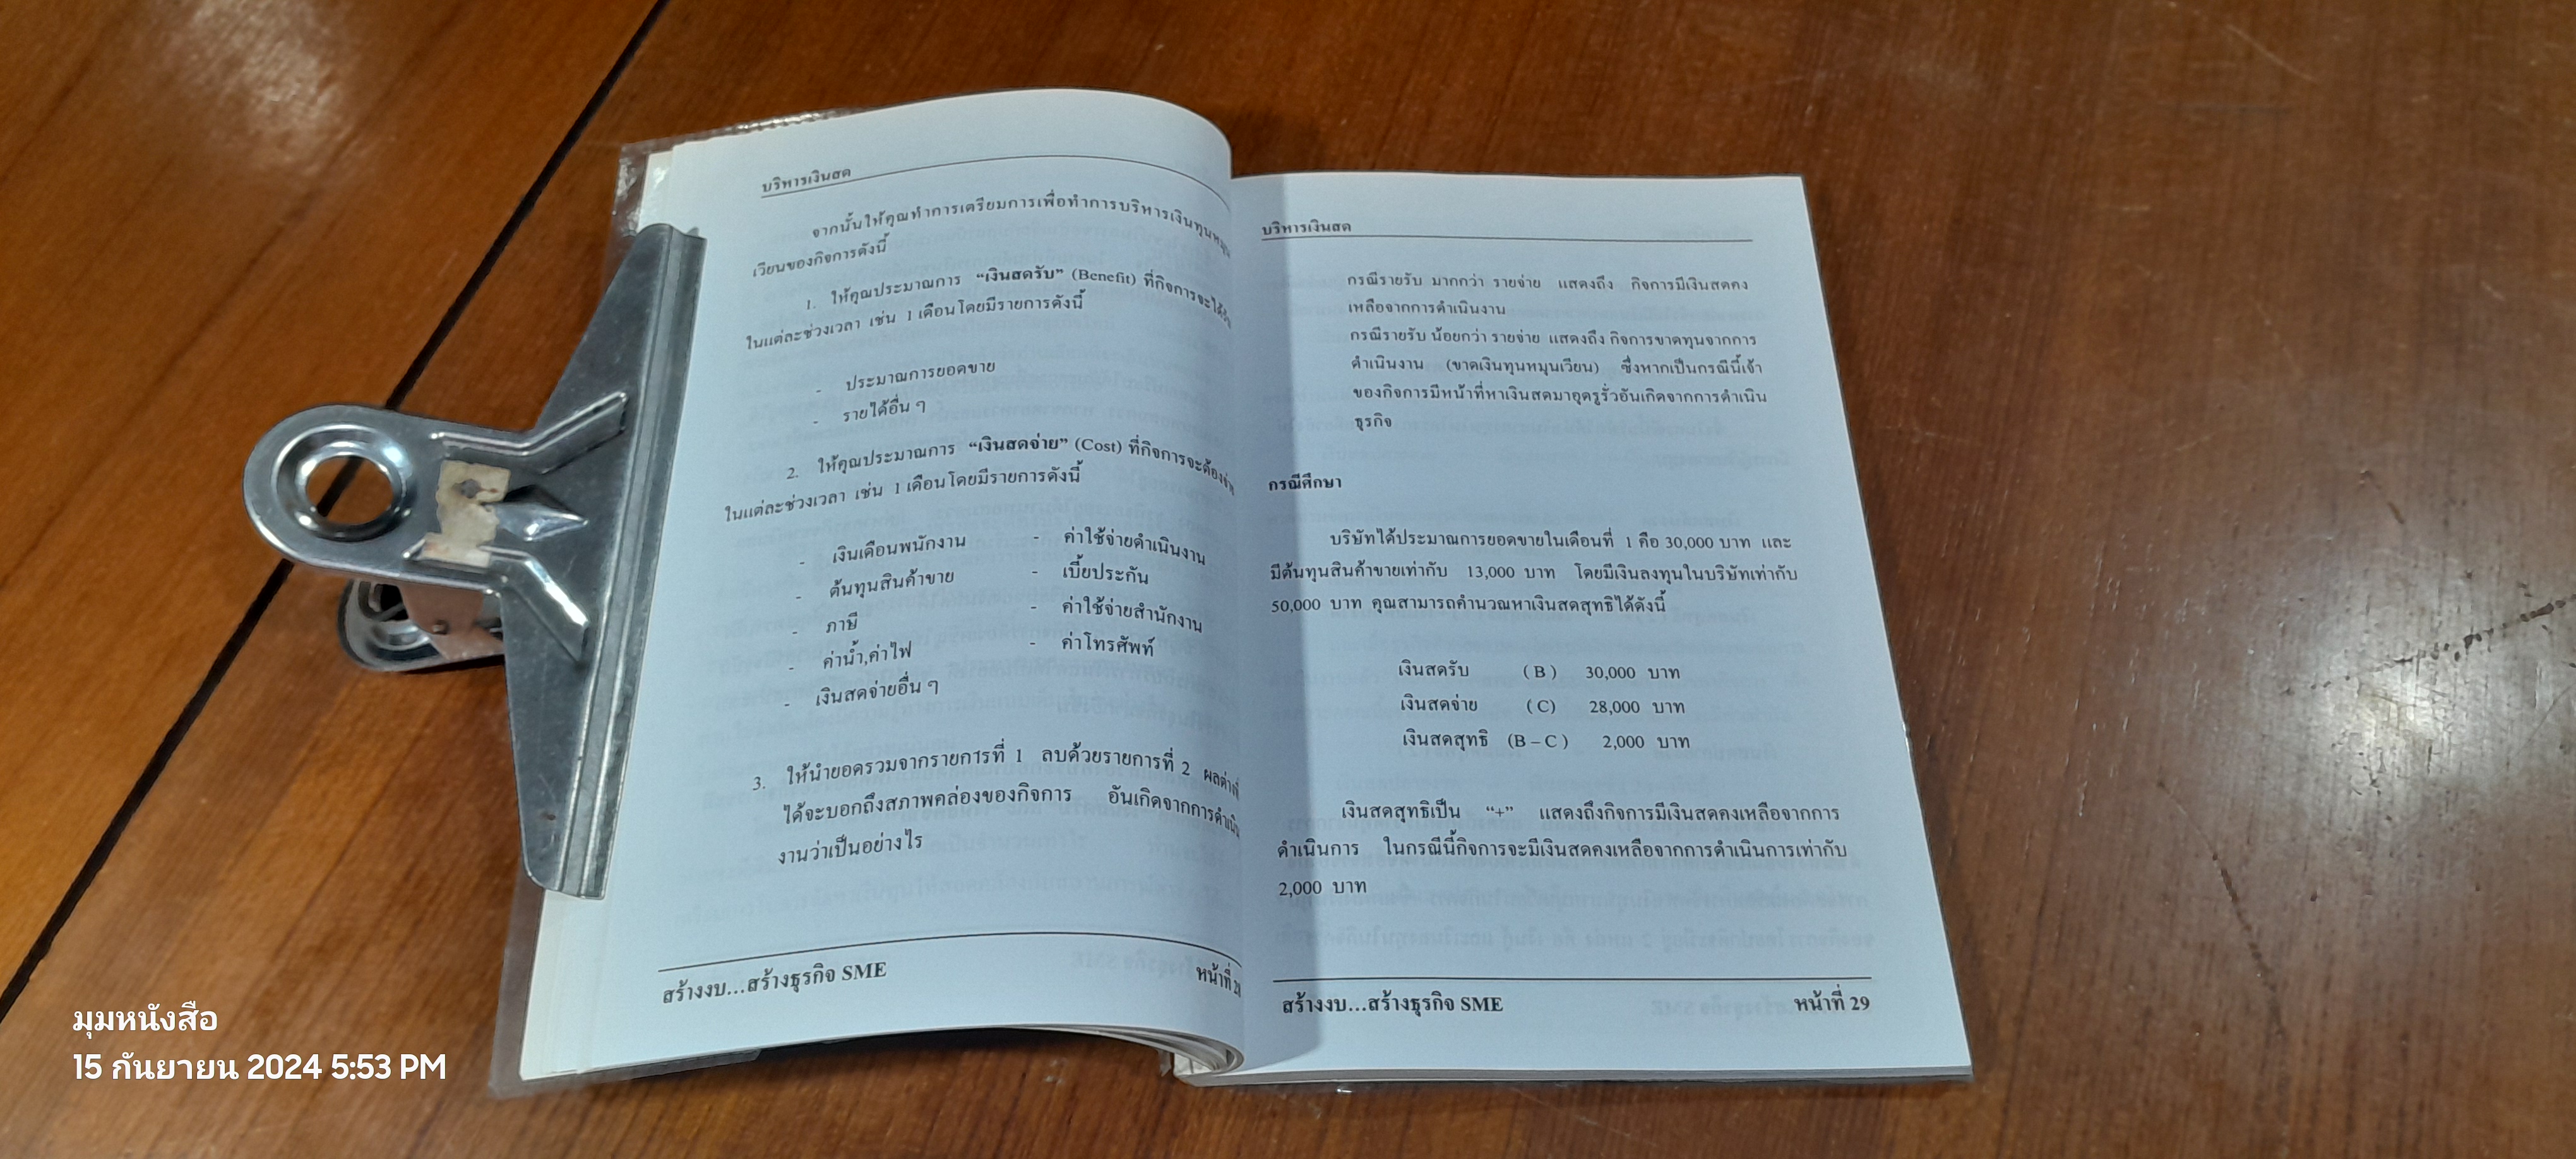 บริหารเงินสด
จากนั้นให้คุณทำการเตรียมการเพื่อทำการบริหารเงินทุนหมุน
เวียนของกิจการดังนี้
1. ให้คุณประมาณการ “เงินสดรับ” (Benefit) ที่กิจการจะได้รับ
ในแต่ละช่วงเวลา เช่น 1 เดือน โดยมีรายการดังนี้
- ประมาณการยอดขาย
- รายได้อื่น ๆ
2. ให้คุณประมาณการ “เงินสดจ่าย” (Cost) ที่กิจการจะต้องจ่าย
ในแต่ละช่วงเวลา เช่น 1 เดือน โดยมีรายการดังนี้
- เงินเดือนพนักงาน - ค่าใช้จ่ายดำเนินงาน
- ต้นทุนสินค้าขาย - เบี้ยประกัน
- ภาษี - ค่าใช้จ่ายสำนักงาน
- ค่าน้ำ,ค่าไฟ - ค่าโทรศัพท์
- เงินสดจ่ายอื่น ๆ
3. ให้นำยอดรวมจากรายการที่ 1 ลบด้วยรายการที่ 2 ผลต่างที่
ได้จะบอกถึงสภาพคล่องของกิจการ อันเกิดจากการดำเนิน
งานว่าเป็นอย่างไร
สร้างงบ...สร้างธุรกิจ SME หน้าที่ 28
บริหารเงินสด
กรณีรายรับ มากกว่า รายจ่าย แสดงถึง กิจการมีเงินสดคง
เหลือจากการดำเนินงาน
กรณีรายรับ น้อยกว่า รายจ่าย แสดงถึง กิจการขาดทุนจากการ
ดำเนินงาน (ขาดเงินทุนหมุนเวียน) ซึ่งหากเป็นกรณีนี้เจ้า
ของกิจการมีหน้าที่หาเงินสดมาอุดรูรั่วอันเกิดจากการดำเนิน
ธุรกิจ
กรณีศึกษา
บริษัทได้ประมาณการยอดขายในเดือนที่ 1 คือ 30,000 บาท และ
มีต้นทุนสินค้าขายเท่ากับ 13,000 บาท โดยมีเงินลงทุนในบริษัทเท่ากับ
50,000 บาท คุณสามารถคำนวณหาเงินสดสุทธิได้ดังนี้
เงินสดรับ ( B ) 30,000 บาท
เงินสดจ่าย ( C ) 28,000 บาท
เงินสดสุทธิ ( B – C ) 2,000 บาท
เงินสดสุทธิเป็น “+” แสดงถึงกิจการมีเงินสดคงเหลือจากการ
ดำเนินการ ในกรณีนี้กิจการจะมีเงินสดคงเหลือจากการดำเนินการเท่ากับ
2,000 บาท
สร้างงบ...สร้างธุรกิจ SME หน้าที่ 29
มุมหนังสือ
15 กันยายน 2024 5:53 PM